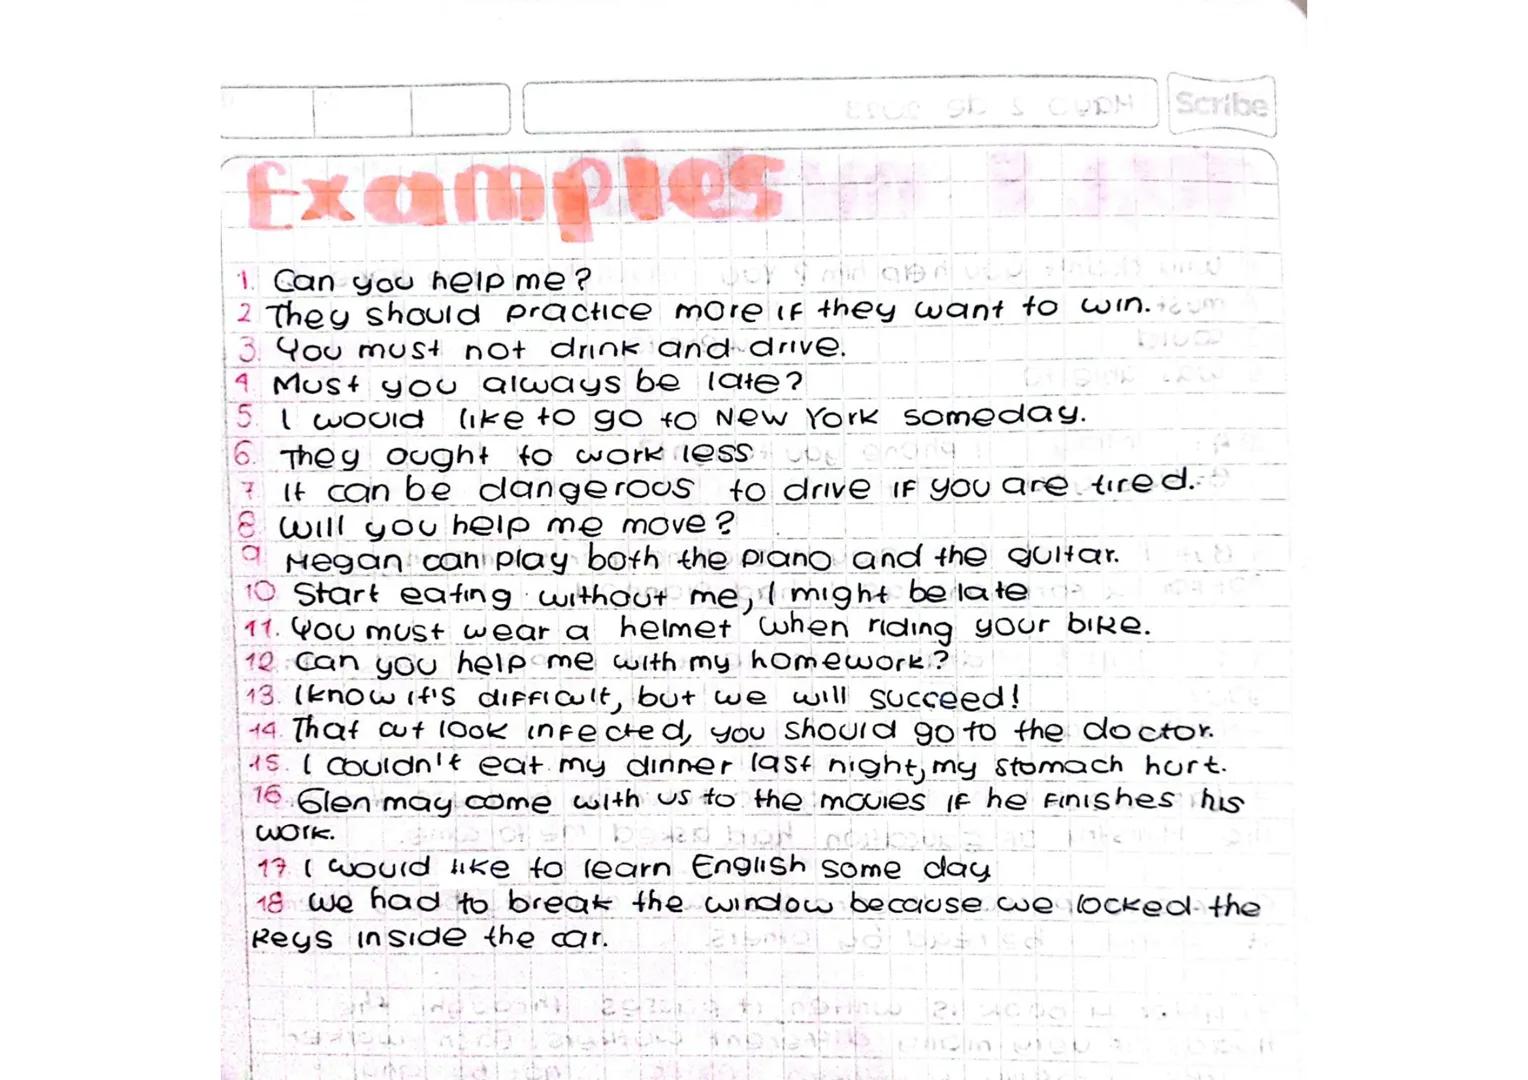 Scribe
Examples
1. Can you help me?
2 They should practice more if they want to win.
3. You must not drink and drive.
4. Must you always be late?
5. I would like to go to New York someday.
6. They ought to work less
7 It can be dangerous to drive if you are tired.
8. Will you help me move?
9 Megan can play both the piano and the guitar.
10 Start eating without me, I might be late
11. You must wear a helmet when riding your bike.
12. Can you help me with my homework?
13. I know it's difficult, but we will succeed!
14. That cut look infected, you should go to the doctor.
15. I couldn't eat my dinner last night, my stomach hurt.
16. Glen may come with us to the movies if he finishes his
work.
17 I would like to learn English some day
18 We had to break the window because we locked the
keys inside the car.